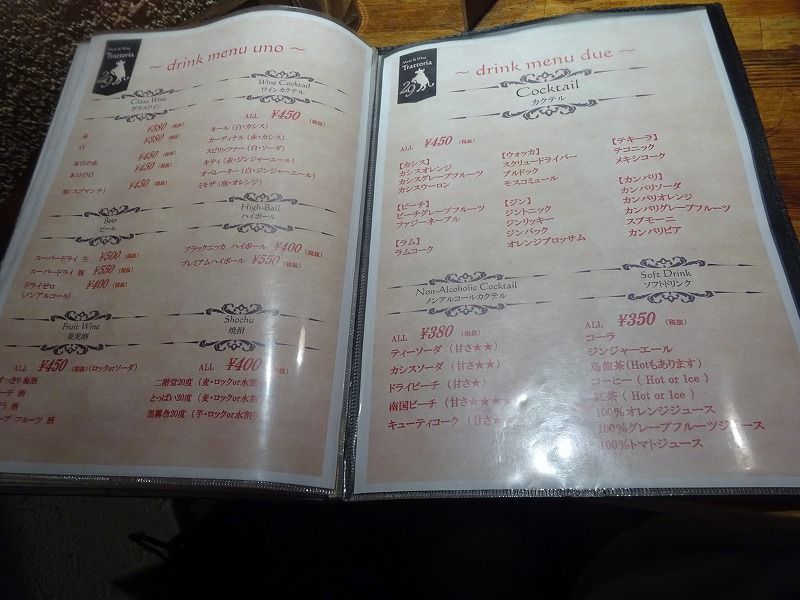 Meat & Wine
Trattoria
29
~ drink menu uno ~
Glass Wine
グラスワイン
赤 ¥380 (税抜)
白 ¥380 (税抜)
本日の赤 ¥450 (税抜)
本日の白 ¥450 (税抜)
泡(スプマンテ) ¥450 (税抜)
Wine Cocktail
ワインカクテル
ALL ¥450 (税抜)
キール (白・カシス)
カーディナル (赤・カシス)
スピリッツァー (白・ソーダ)
キティ (赤・ジンジャーエール)
オペレーター (白・ジンジャーエール)
ミモザ (泡・オレンジ)
Beer
ビール
スーパードライ 生 ¥500 (税抜)
スーパードライ 瓶 ¥550 (税抜)
ドライゼロ ¥400 (税抜)
(ノンアルコール)
High-Ball
ハイボール
ブラックニッカ ハイボール ¥400 (税抜)
プレミアムハイボール ¥550 (税抜)
Fruit Wine
果実酒
ALL ¥450 (税抜) (ロックorソーダ)
すっきり梅酒
ーチ 酒
酒
ープ フルーツ 酒
Shochu
焼酎
ALL ¥400 (税抜)
二階堂20度 (麦・ロックor水割
とっぱい20度 (麦・ロックor水割
黒霧島20度 (芋・ロックor水割り
Meat & Wine
Trattoria
29
~ drink menu due ~
Cocktail
カクテル
ALL ¥450 (税抜)
【カシス】
カシスオレンジ
カシスグレープフルーツ
カシスウーロン
【ピーチ】
ピーチグレープフルーツ
ファジーネーブル
【ラム】
ラムコーク
【ウォッカ】
スクリュードライバー
ブルドック
モスコミュール
【ジン】
ジントニック
ジンリッキー
ジンバック
オレンジブロッサム
【テキーラ】
テコニック
メキシコーク
【カンパリ】
カンパリソーダ
カンパリオレンジ
カンパリグレープフルーツ
スプモーニ
カンパリビア
Non-Alcoholic Cocktail
ノンアルコールカクテル
ALL ¥380 (税抜)
ティーソーダ (甘さ★★)
カシスソーダ (甘さ★★)
ドライピーチ (甘さ★)
南国ピーチ (甘さ★★★
キューティコーク (甘さ★
Soft Drink
ソフトドリンク
ALL ¥350 (税抜)
コーラ
ジンジャーエール
烏龍茶(Hotもあります)
コーヒー ( Hot or Ice )
紅茶 ( Hot or Ice )
100%オレンジジュース
100%グレープフルーツジュース
100%トマトジュース